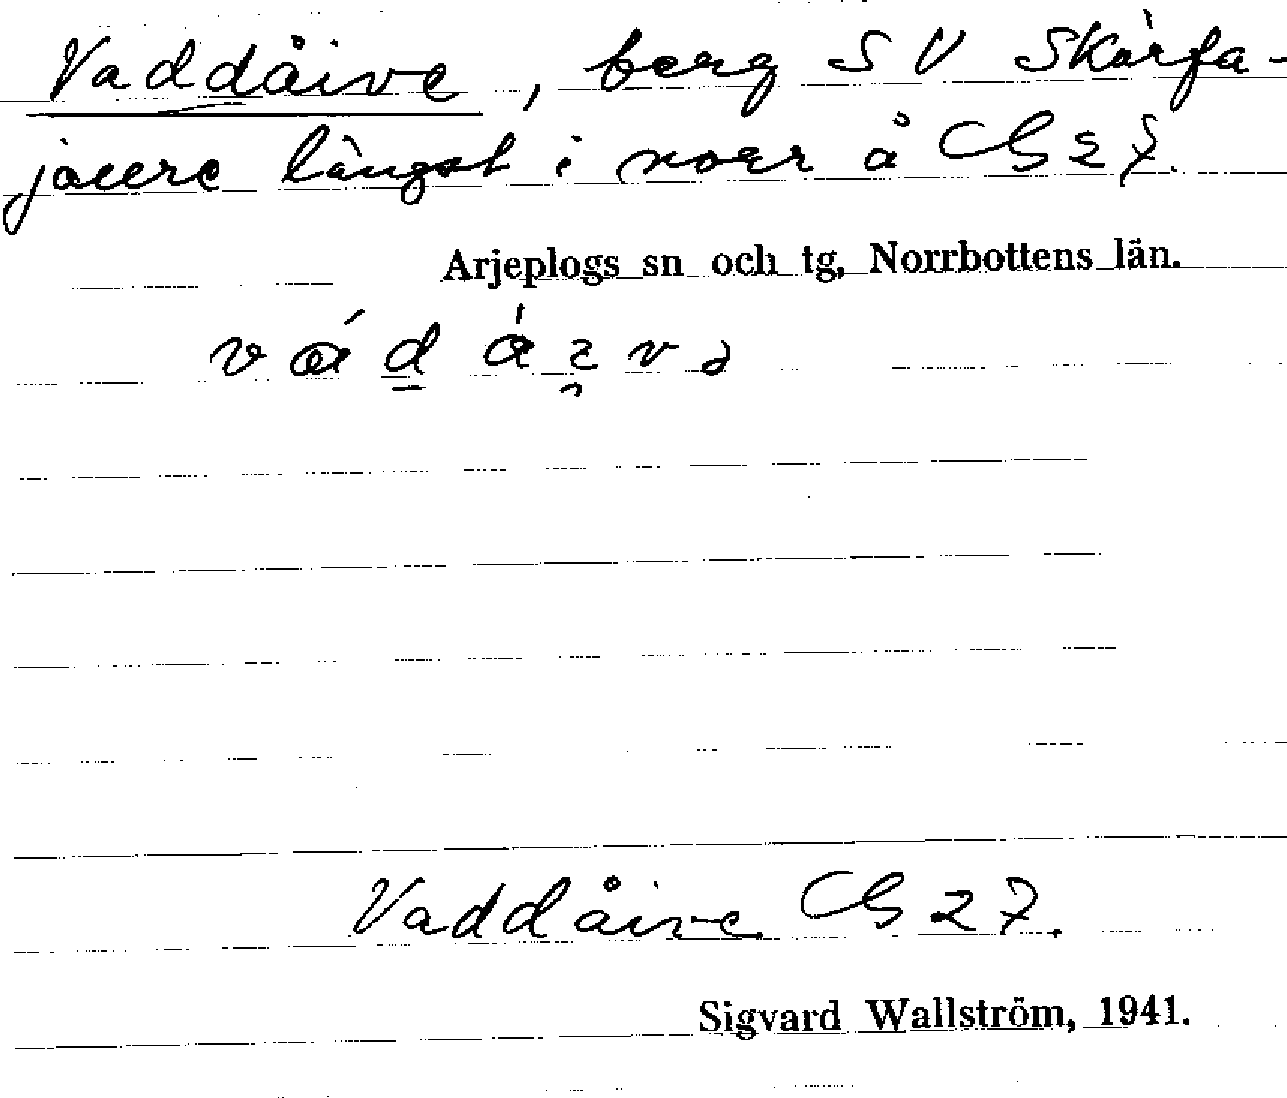 Vaddåive, berg SV Skärfa-
jaure längst i norr å GS 27.
Arjeplogs sn och tg, Norrbottens län.
Vaddåive GS 27.
Sigvard Wallström, 1941.